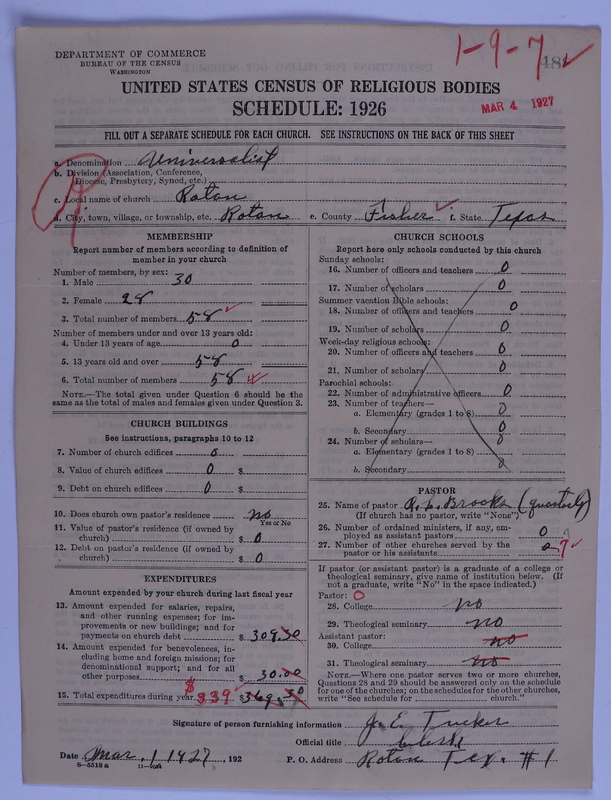 1-9-7
182
DEPARTMENT OF COMMERCE
BUREAU OF THE CENSUS
WASHINGTON
UNITED STATES CENSUS OF RELIGIOUS BODIES
SCHEDULE: 1926
MAR 4 1927
FILL OUT A SEPARATE SCHEDULE FOR EACH CHURCH. SEE INSTRUCTIONS ON THE BACK OF THIS SHEET
a. Denomination Universalist
b. Division (Association, Conference, Diocese, Presbytery, Synod, etc.)
c. Local name of church Rotan
d. City, town, village, or township, etc. Rotan e. County Fisher f. State Texas
MEMBERSHIP
Report number of members according to definition of
member in your church
Number of members, by sex:
1. Male 30
2. Female 28
3. Total number of members 58
Number of members under and over 13 years old:
4. Under 13 years of age 0
5. 13 years old and over 58
6. Total number of members 58
NOTE.—The total given under Question 6 should be the
same as the total of males and females given under Question 3.
CHURCH BUILDINGS
See instructions, paragraphs 10 to 12
7. Number of church edifices 0
8. Value of church edifices 0 $
9. Debt on church edifices 0 $
10. Does church own pastor's residence no
Yes or No
11. Value of pastor's residence (if owned by
church) $ 0
12. Debt on pastor's residence (if owned by
church) $ 0
EXPENDITURES
Amount expended by your church during last fiscal year
13. Amount expended for salaries, repairs,
and other running expenses; for im-
provements or new buildings; and for
payments on church debt $ 309.50
14. Amount expended for benevolences, in-
cluding home and foreign missions; for
denominational support; and for all
other purposes 30.00
15. Total expenditures during year $339 $ 369.50
CHURCH SCHOOLS
Report here only schools conducted by this church
Sunday schools:
16. Number of officers and teachers 0
17. Number of scholars 0
Summer vacation Bible schools:
18. Number of officers and teachers 0
19. Number of scholars 0
Week-day religious schools:
20. Number of officers and teachers 0
21. Number of scholars 0
Parochial schools:
22. Number of administrative officers 0
23. Number of teachers—
a. Elementary (grades 1 to 8) 0
b. Secondary 0
24. Number of scholars— 0
a. Elementary (grades 1 to 8)
b. Secondary 0
PASTOR
25. Name of pastor R. L. Brooks (quarterly)
(If church has no pastor, write "None")
26. Number of ordained ministers, if any, em-
ployed as assistant pastors 0
27. Number of other churches served by the
pastor or his assistants 7
If pastor (or assistant pastor) is a graduate of a college or
theological seminary, give name of institution below. (If
not a graduate, write "No" in the space indicated.)
Pastor: 0
28. College no
29. Theological seminary no
Assistant pastor:
30. College no
31. Theological seminary no
NOTE.—Where one pastor serves two or more churches,
Questions 28 and 29 should be answered only on the schedule
for one of the churches; on the schedules for the other churches,
write "See schedule for church."
Signature of person furnishing information J. E. Tucker
Official title clerk
Date Mar. 1 1927, 192 P. O. Address Rotan Tex. #1
8—5518 a